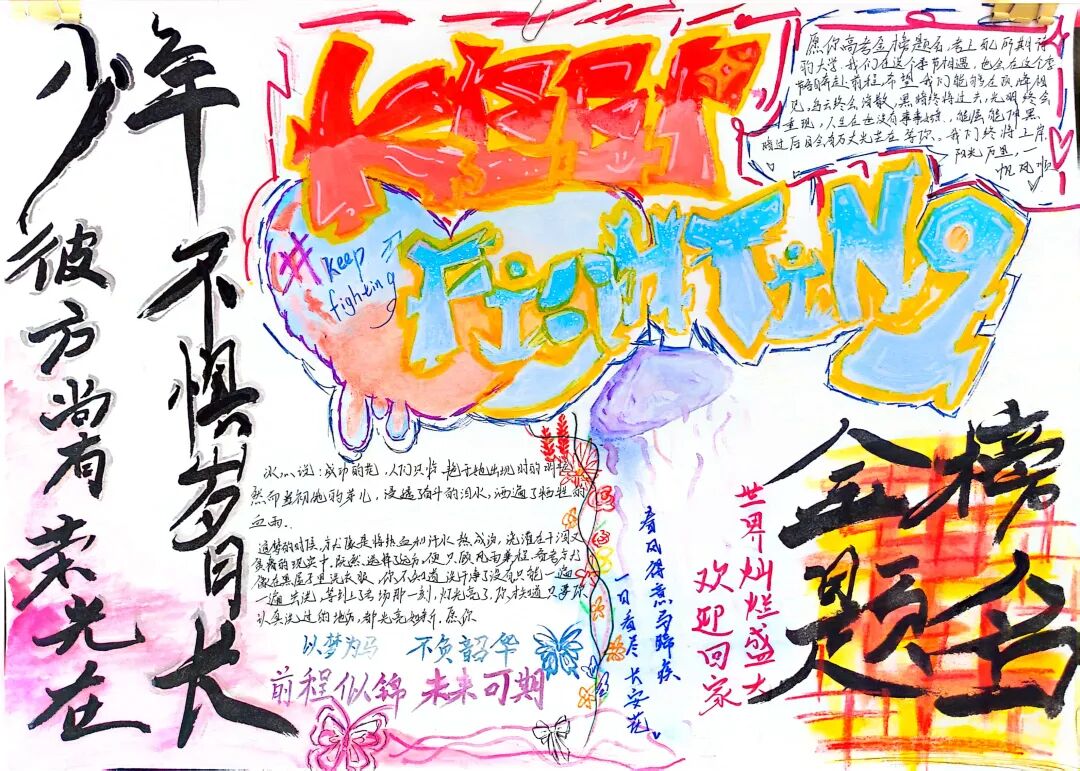 少年不惧岁月长
彼方尚有荣光在
KEEP
FIGHTING
#
keep
fighting
愿你高考金榜题名,考上礼所期许
的大学,我们在这个季节相遇,也会在这个季
节奔赴前程,希望我们能够在顶峰相
见,乌云终会消散,黑暗终将过去,光明终会
重现,人生在世没有事事如意,能屈能伸黑
暗过后自会有万丈光芒在等你。我们终将上岸,
阳光万里,一
帆风顺
冰心说:成功的花,人们只惊艳于她出现时的明艳
然而当初她的芽儿,浸透奋斗的泪水,洒遍了牺牲的
血雨。
追梦的时候,
的现实中,既然选择了远方,便只顾风雨兼程,高考
像在黑屋子里洗衣服,你不知道洗干净了没有只能一遍
一遍去洗,等到上了考场那一刻,灯光亮了,你发现只要你
认真洗过的地方,都光亮如新,愿你
以梦为马 不负韶华
前程似锦 未来可期
春风得意马蹄疾
一日看尽长安花
世界灿烂盛大
欢迎回家
金榜
题名